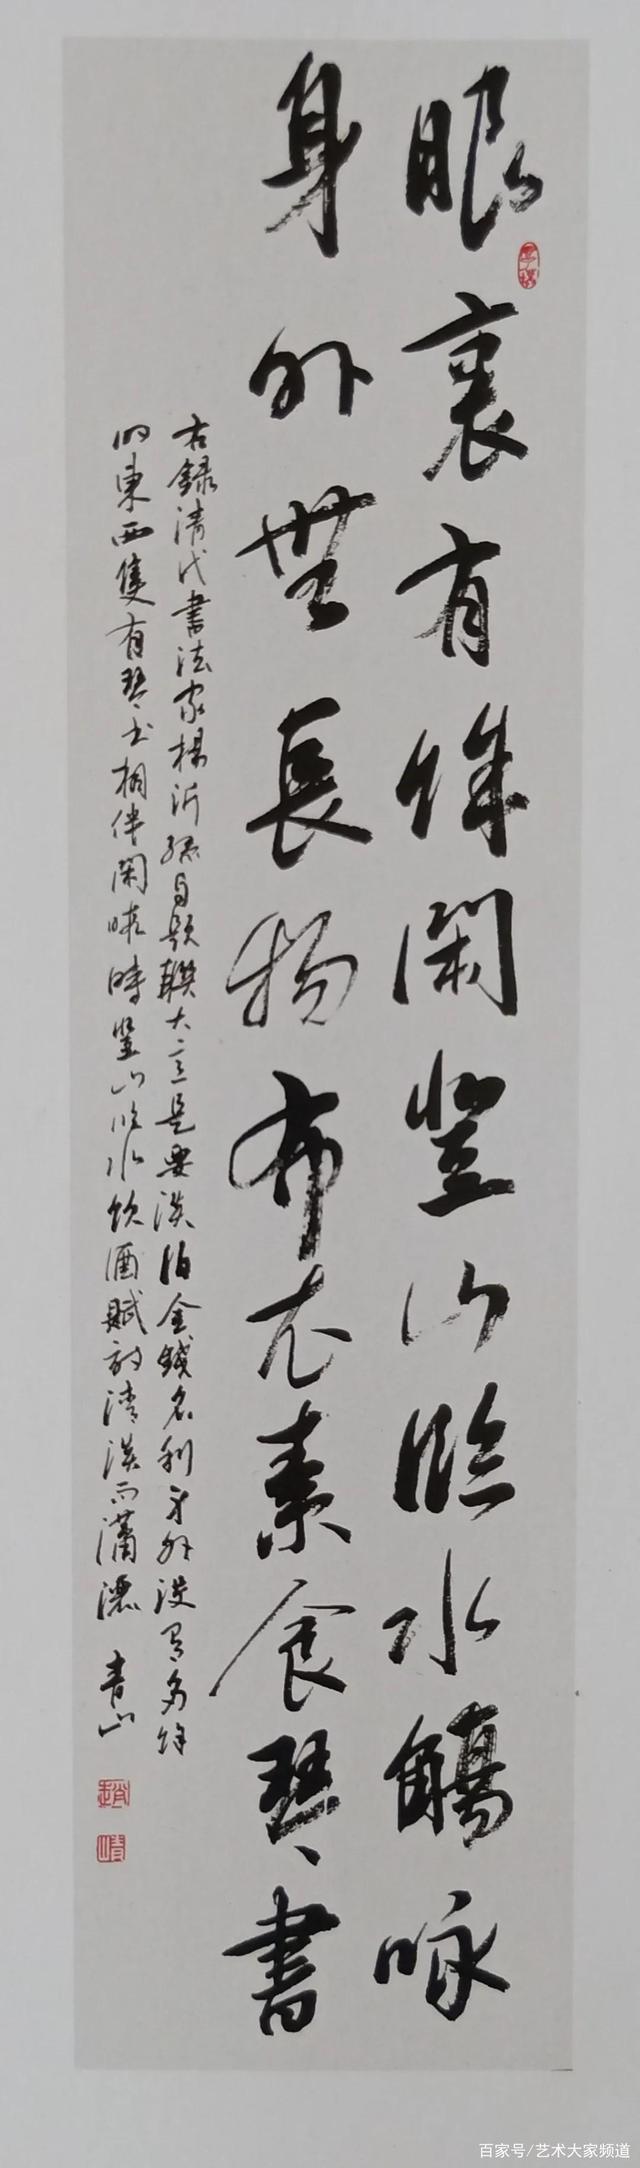 眼裏有餘閑登山臨水觴咏
身外無長物布衣素食琴書
右録清代書法家楊沂孫自題聯大意是要淡泊金錢名利身外没有多餘
的東西隻有琴书相伴閑暇時登山臨水飲酒賦詩清淡而瀟灑 青山
百家号/艺术大家频道